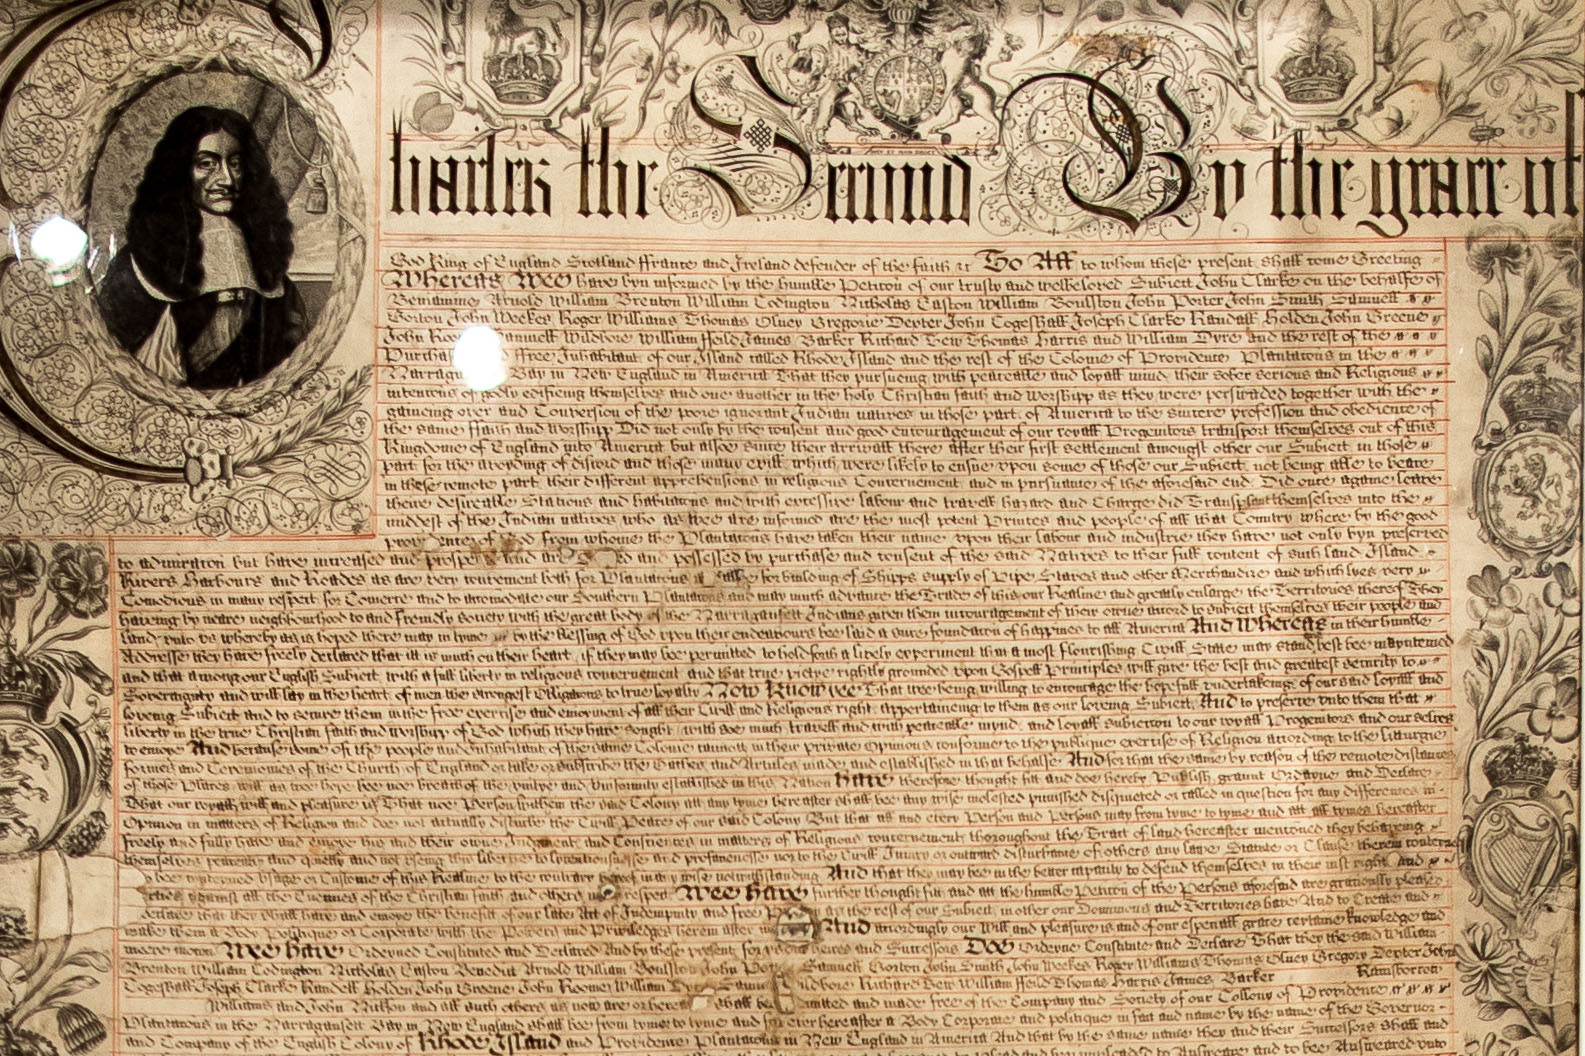 Charles the Second By the grace of
God King of England Scotland ffrance and Ireland defender of the faith &c To All to whom these present shall come Greeting
Whereas Wee have byn informed by the humble Peticon of our trusty and welbeloved Subiect John Clarke on the behalfe of
Beniamine Arnold William Brenton William Codington Nicholas Easton William Boulston John Porter John Smith Samuell
Gorton John Weekes Roger Williams Thomas Olney Gregorie Dexter John Cogeshall Joseph Clarke Randall Holden John Greene
John Roo Samuell Wildbore William ffeild James Barker Richard Tew Thomas Harris and William Dyre and the rest of the
Purcha ffree Inhabitant of our Island called Rhode Island and the rest of the Colonie of Providence Plantations in the
Narraga Bay in New England in America That they pursueing with peaceable and loyall mind their sober serious and Religious
intentons of godly edificing themselves and one another in the holy Christian faith and worshipp as they were perswaded together with the
gaineing over and Conversion of the poore ignorant Indian natives in those part of America to the sincere profession and obedience of
the same ffaith and worshipp Did not only by the consent and good encouragement of our royall Progenitors transport themselves out of this
Kingdome of England into America but alsoe since their arrivall there after their first settlement amongst other our Subiect in those
part for the avoyding of discord and those many evill which were likely to ensue upon some of those our Subiect not being able to beare
in these remote part their different apprehensions in religious Concernement and in pursuance of the aforesaid end Did once againe leave
theire desireable Stations and habitatons and with excessive labour and travell hazard and Charge did Transplant themselves into the
middest of the Indian natives who as wee are informed are the most potent Princes and people of all that Country where by the good
God from whome the Plantatons have taken their name upon their labour and industrie they have not only byn preserved
to admiraton but have increased and prosper and are and possessed by purchase and consent of the said Natives to their full content of such land Island
Rivers Harbours and Roades as are very convenient both for Plantatons for building of Shipps supply of Pipe Staves and other Merchandize and which lyes very
Comodious in many respect for Comerce and to accomodate our Southern Plantatons and may much advance the Trade of this our Realme and greatly enlarge the Territories thereof They
having by neare neighbourhood to and friendly society with the great body of the Narragansett Indians given them incouragement of their owne accord to subiect themselves their people and
land unto us whereby as is hoped there may in tyme by the blessing of God upon their endeavours bee laid a sure foundaton of happines to all America And Whereas in their humble
Addresse they have freely declared that it is much on their heart if they may bee permitted to hold forth a lively experiment that a most flourishing Civill State may stand best bee maynteined
and that among our English Subiect with a full liberty in religious concernement and that true pietye rightly grounded upon Gospell Principles will give the best and greatest security to
Soveraignty and will lay in the heart of men the strongest Obligations to true loyalty Now Know yee That wee being willing to encourage the hopefull undertakeing of our said loyall and
loveing Subiect and to secure them in the free exercise and enioyment of all their Civill and Religious right appertaining to them as our loveing Subiect And to preserve unto them that
liberty in the true Christian faith and worshipp of God which they have sought with soe much travell and with peaceable mynd and loyall subieccion to our royall Progenitors and our selves
to enioye And because some of the people and Inhabitant of the same Colonie cannot in their private Opinions conforme to the publique exercise of Religion according to the liturgie
formes and Ceremonies of the Church of England or take or subscribe the Oathes and Articles made and established in that behalfe And for that the same by reason of the remote distances
of those Places will as wee hope bee noe breach of the unitye and Uniformity established in this Nation Have therefore thought fit and doe hereby Publish graunt Ordayne and Declare
That our royall will and pleasure is That noe Person within the said Colony att any tyme hereafter shall bee any wise molested punished disquieted or called in question for any differences in
Opinion in matters of Religion and doe not actually disturbe the Civill Peace of our said Colony But that all and every Person and Persons may from tyme to tyme and att all tymes hereafter
freely and fully have and enioye his and their owne Judgment and Consciences in matters of Religious concernement thoroughout the Tract of land hereafter mentoned they behaveing
themselves peaceably and quietly and not useing this libertie to lycentiousnesse and profanenesse nor to the Civill Iniury or outward disturbance of others any lawe Statute or Clause therein
Usage or Custome of this Realme to the contrary hereof in any wise notwithstanding And that they may bee in the better capacity to defend themselves in their iust right and
against all the Enemies of the Christian faith and others in respect Wee have further thought fit and att the humble Peticon of the Persons aforesaid are gratiously pleased
declare that they shall have and enioye the benefit of our late Act of Indempnity and free as the rest of our Subiect in other our Dominions and Territories have And to Create and
make them a Body Politique or Corporate with the Powers and Priviledges herein after And accordingly our Will and pleasure is and of our especiall grace certaine knowledge and
meere moton Wee have Ordeyned Constituted and Declared And by these present for us our heires and Successors Doe Ordeyne Constitute and Declare That they the said William
Brenton William Codington Nicholas Easton Benedict Arnold William Boulston John Samuell Gorton John Smith John Weekes Roger Williams Thomas Olney Gregory Dexter John
Cogeshall Joseph Clarke Randell Holden John Greene John Roome William Wildbore Richard Tew William ffeild Thomas Harris James Barker Rainsborrow
Williams and John Nickson and all such others as now are or hereaf shall be admitted and made free of the Company and Society of our Collony of Providence
Plantatons in the Narragansett Bay in New England shall bee from tyme to tyme and for ever hereafter a Body Corporate and politique in fact and name by the name of the Governor
and Company of the English Colony of Rhode Island and Providence Plantatons in New England in America And that by the same name they and their Successors shall and